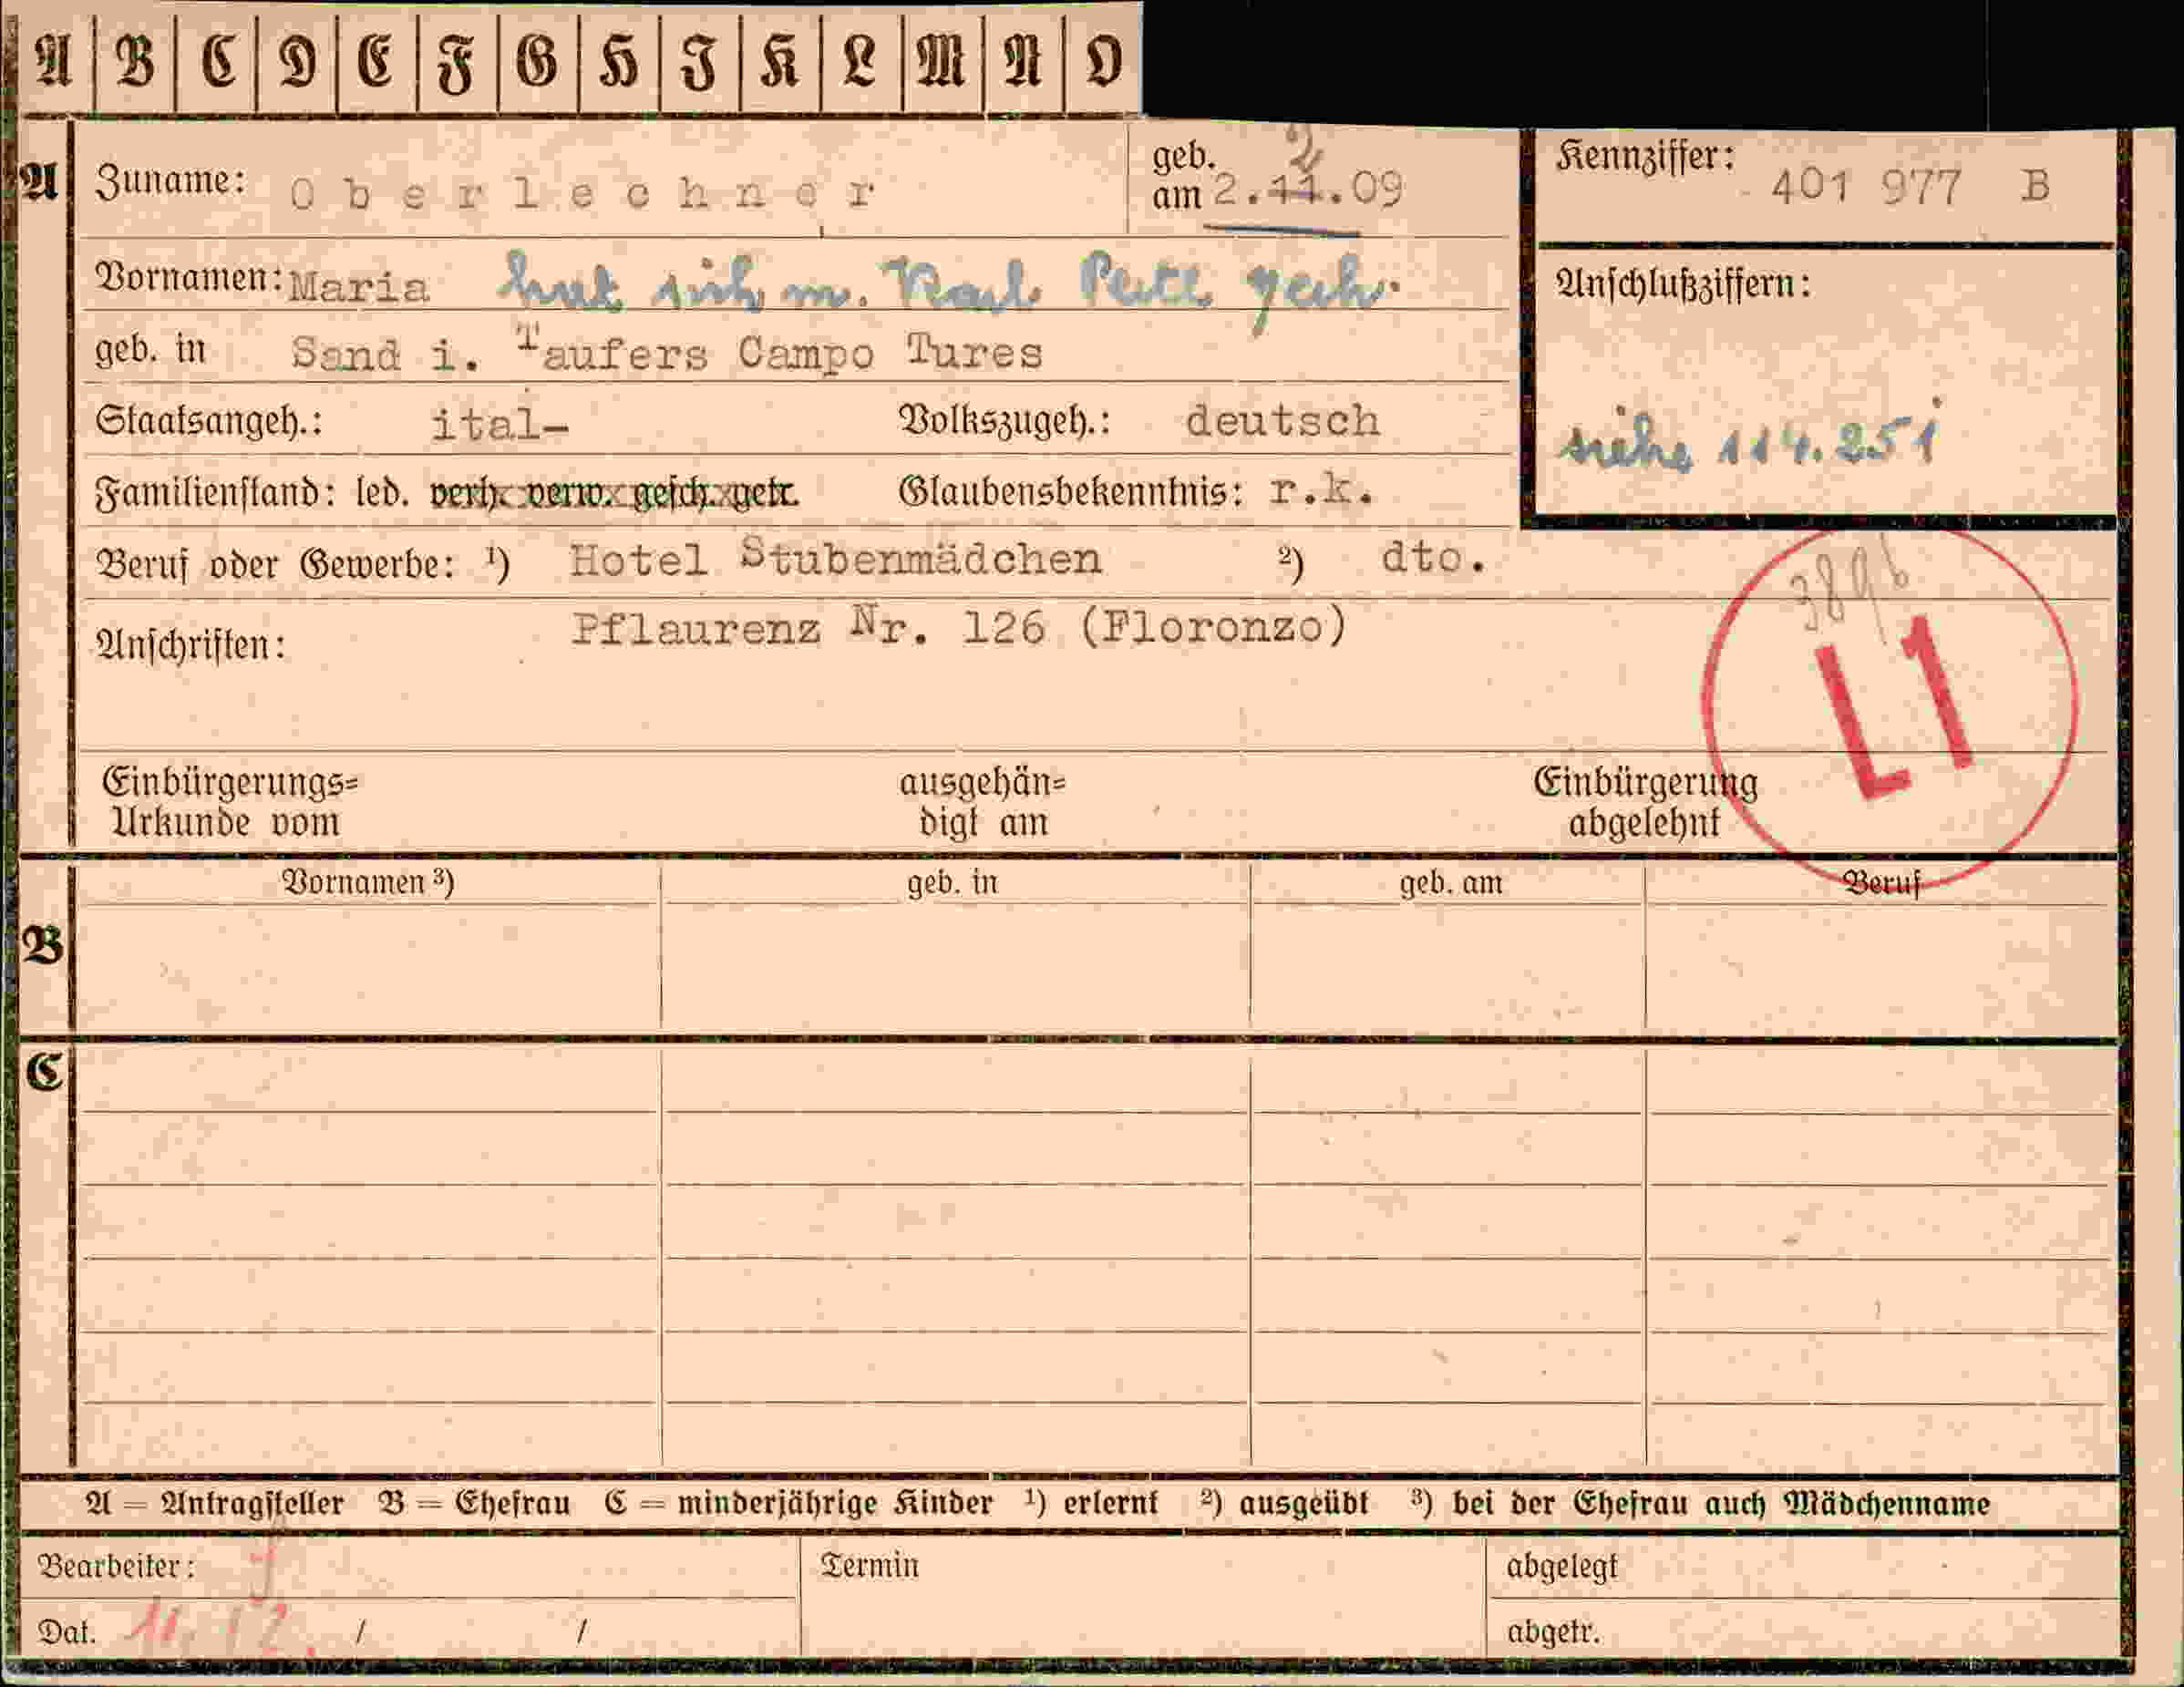 A B C D E F G H I K L M N O
A Zuname: Oberlechner geb. am 2.11.09 2 Kennziffer: 401 977 B
Vornamen: Maria hat sich m. Karl geh. Anschlußziffern:
geb. in Sand i. Taufers Campo Tures
Staatsangeh.: ital- Volkszugeh.: deutsch siehe 114.251
Familienstand: led. verh. verw. gesch. getr. Glaubensbekenntnis: r.k.
Beruf oder Gewerbe: ¹) Hotel Stubenmädchen ²) dto.
3896
Anschriften: Pflaurenz Nr. 126 (Floronzo)
L1
Einbürgerungs= ausgehän= Einbürgerung
Urkunde vom digt am abgelehnt
Vornamen ³) geb. in geb. am Beruf
B
C
A = Antragsteller B = Ehefrau C = minderjährige Kinder ¹) erlernt ²) ausgeübt ³) bei der Ehefrau auch Mädchenname
Bearbeiter: Termin abgelegt
Dat. 11. 12. / / abgetr.